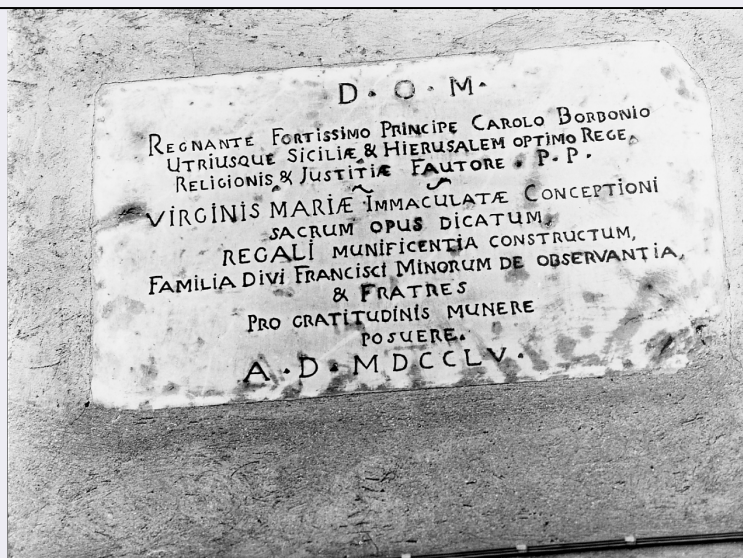 D. O. M.
REGNANTE FORTISSIMO PRINCIPE CAROLO BORBONIO
UTRIUSQUE SICILIÆ, & HIERUSALEM OPTIMO REGE,
RELIGIONIS, & JUSTITIÆ FAUTORE. P. P.
VIRGINIS MARIÆ IMMACULATÆ CONCEPTIONI
SACRUM OPUS DICATUM,
REGALI MUNIFICENTIA CONSTRUCTUM,
FAMILIA DIVI FRANCISCI MINORUM DE OBSERVANTIA,
& FRATRES
PRO GRATITUDINIS MUNERE
POSUERE.
A. D. MDCCLV.